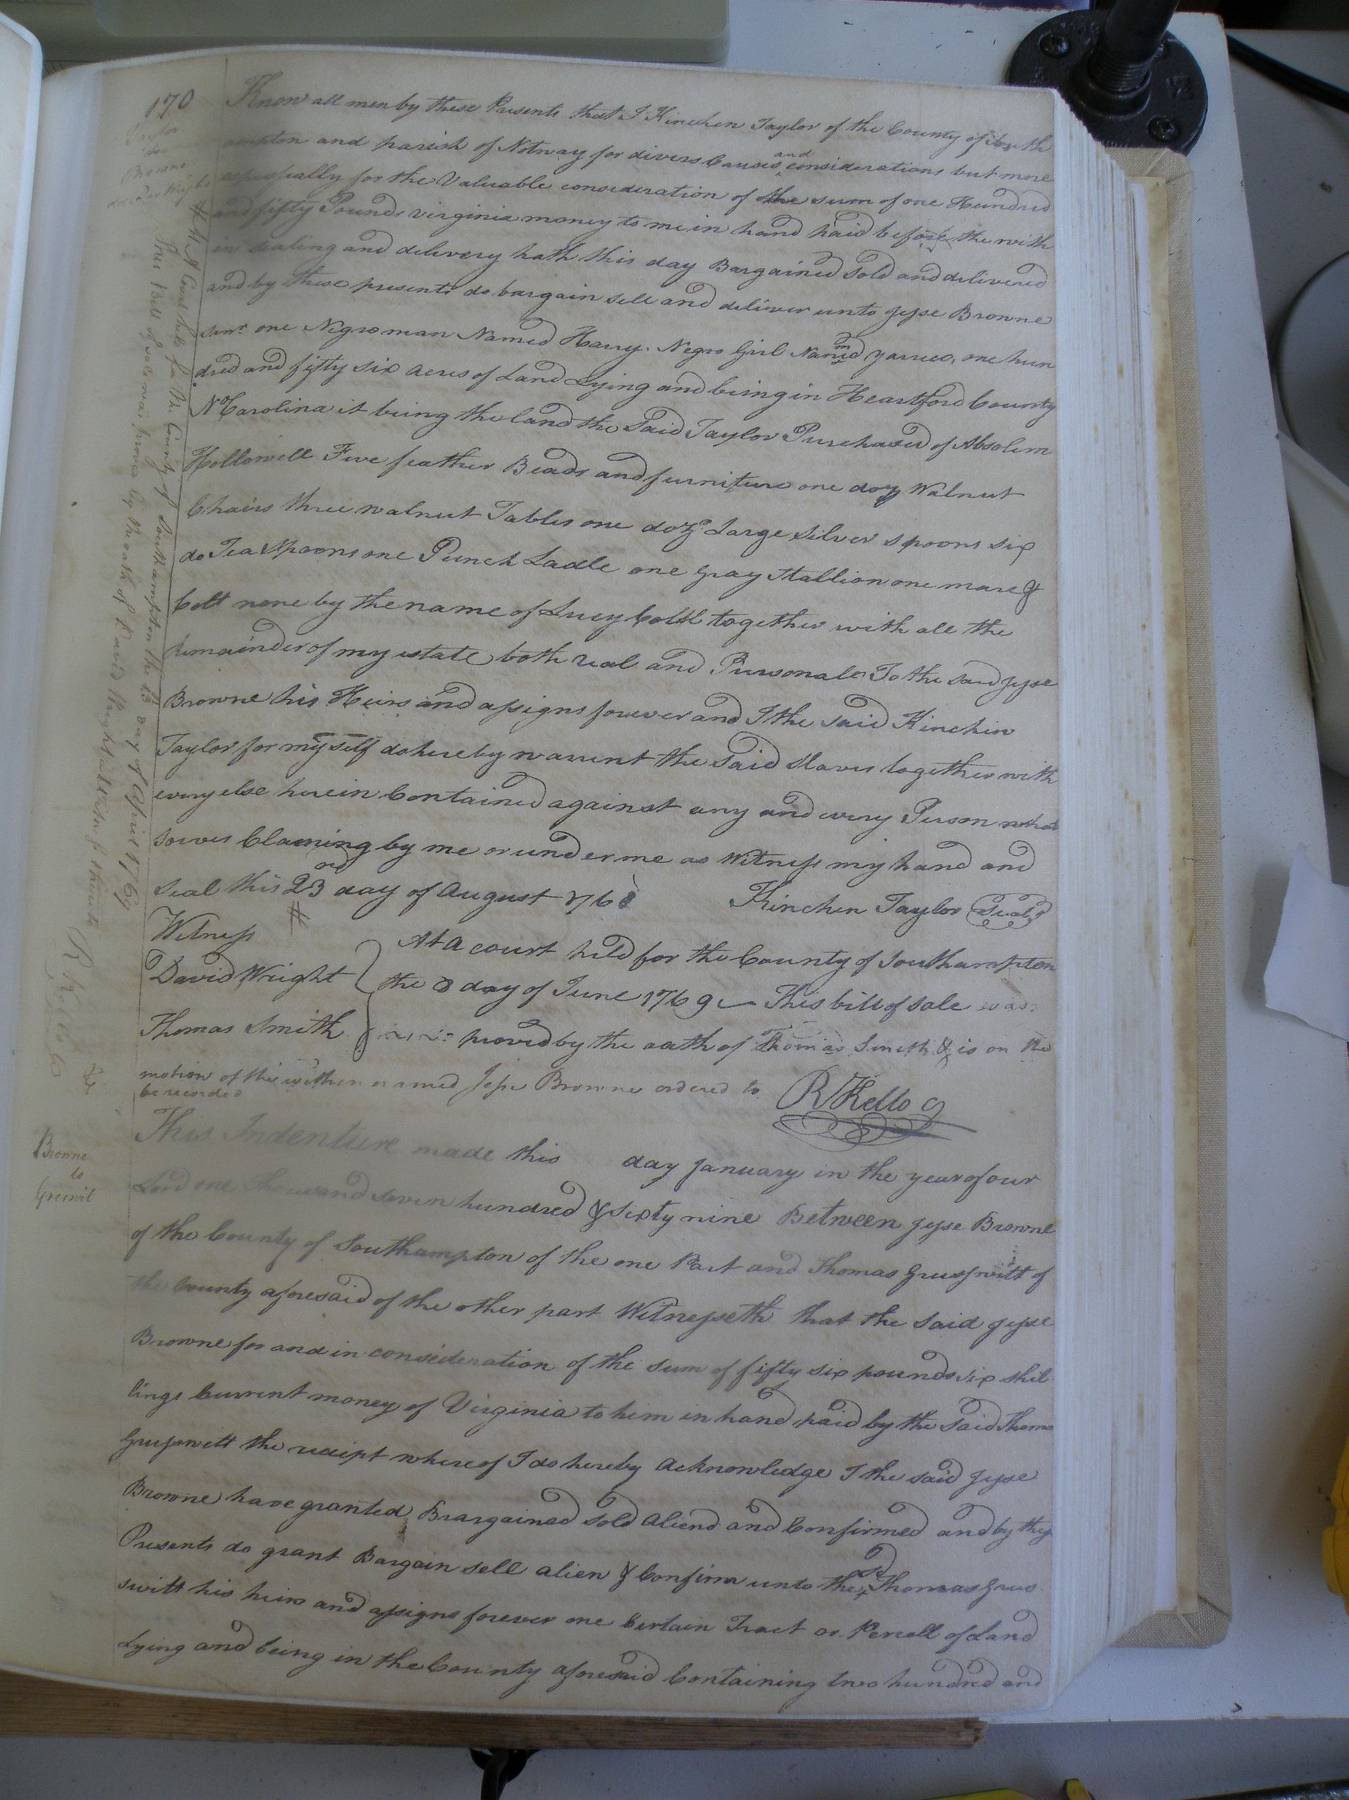 170
Know all men by these Presents that I Kinchen Taylor of the County of South
ampton and parish of Notway for divers Causes and considerations but more
especially for the Valuable consideration of the sum of one Hundred
and fifty Pounds virginia money to me in hand paid before the with
in Sealing and delivery hath this day Bargained Sold and delivered
and by these presents do bargain sell and deliver unto Jesse Browne
Senr. one Negro man Named Harry. Negro Girl Named one hun
dred and fifty six acres of Land Lying and being in Heartford County
No Carolina it being the land the Said Taylor Purchased of Absolem
Hollowell Five feather Beads and furniture one doz Walnut
Chairs three walnut Tables one doz Large Silver spoons six
do Tea Spoons one Punch Ladle one Gray Stallion one mare &
Colt none by the name of Lucy Colt together with all the
Remainder of my estate both real and Personale To the said Jesse
Browne his Heirs and assigns forever and I the Said Kinchin
Taylor for myself do hereby warrent the Said Slaves together with
every else herein Contained against any and every Person what
soever Claiming by me or under me as Witness my hand and
Seal this 23rd day of August 176 Kinchen Taylor (Seal)
Witness
David Wright
Thomas Smith
At a court held for the County of Southampton
the 8 day of June 1769 This bill of Sale was
proved by the oath of Thomas Smith & is on the
motion of the within named Jesse Browne ordered to
be recorded
R Kello
At A Court held for the County of Southampton the 13 day of April 1769
This Bill of Sale was proved by the oath of David Wright
R Kello
Browne
to
This Indenture made this day January in the year of our
Lord one thousand seven hundred & Sixty nine Between Jesse Browne
of the County of Southampton of the one Part and Thomas Grusswitt of
the County aforesaid of the other part Witnesseth that the Said Jesse
Browne for and in consideration of the sum of fifty six pounds six shil
lings Current money of Virginia to him in hand paid by the Said Thoms
the receipt whereof I do hereby acknowledge I the said Jesse
Browne have granted Bargained Sold aliend and Confirmed and by thes
Presents do grant Bargain sell alien & Confirm unto the sd Thomas Grus
switt his heirs and assigns forever one Certain Tract or Percell of Land
Lying and being in the County aforesaid Containing two hundred and